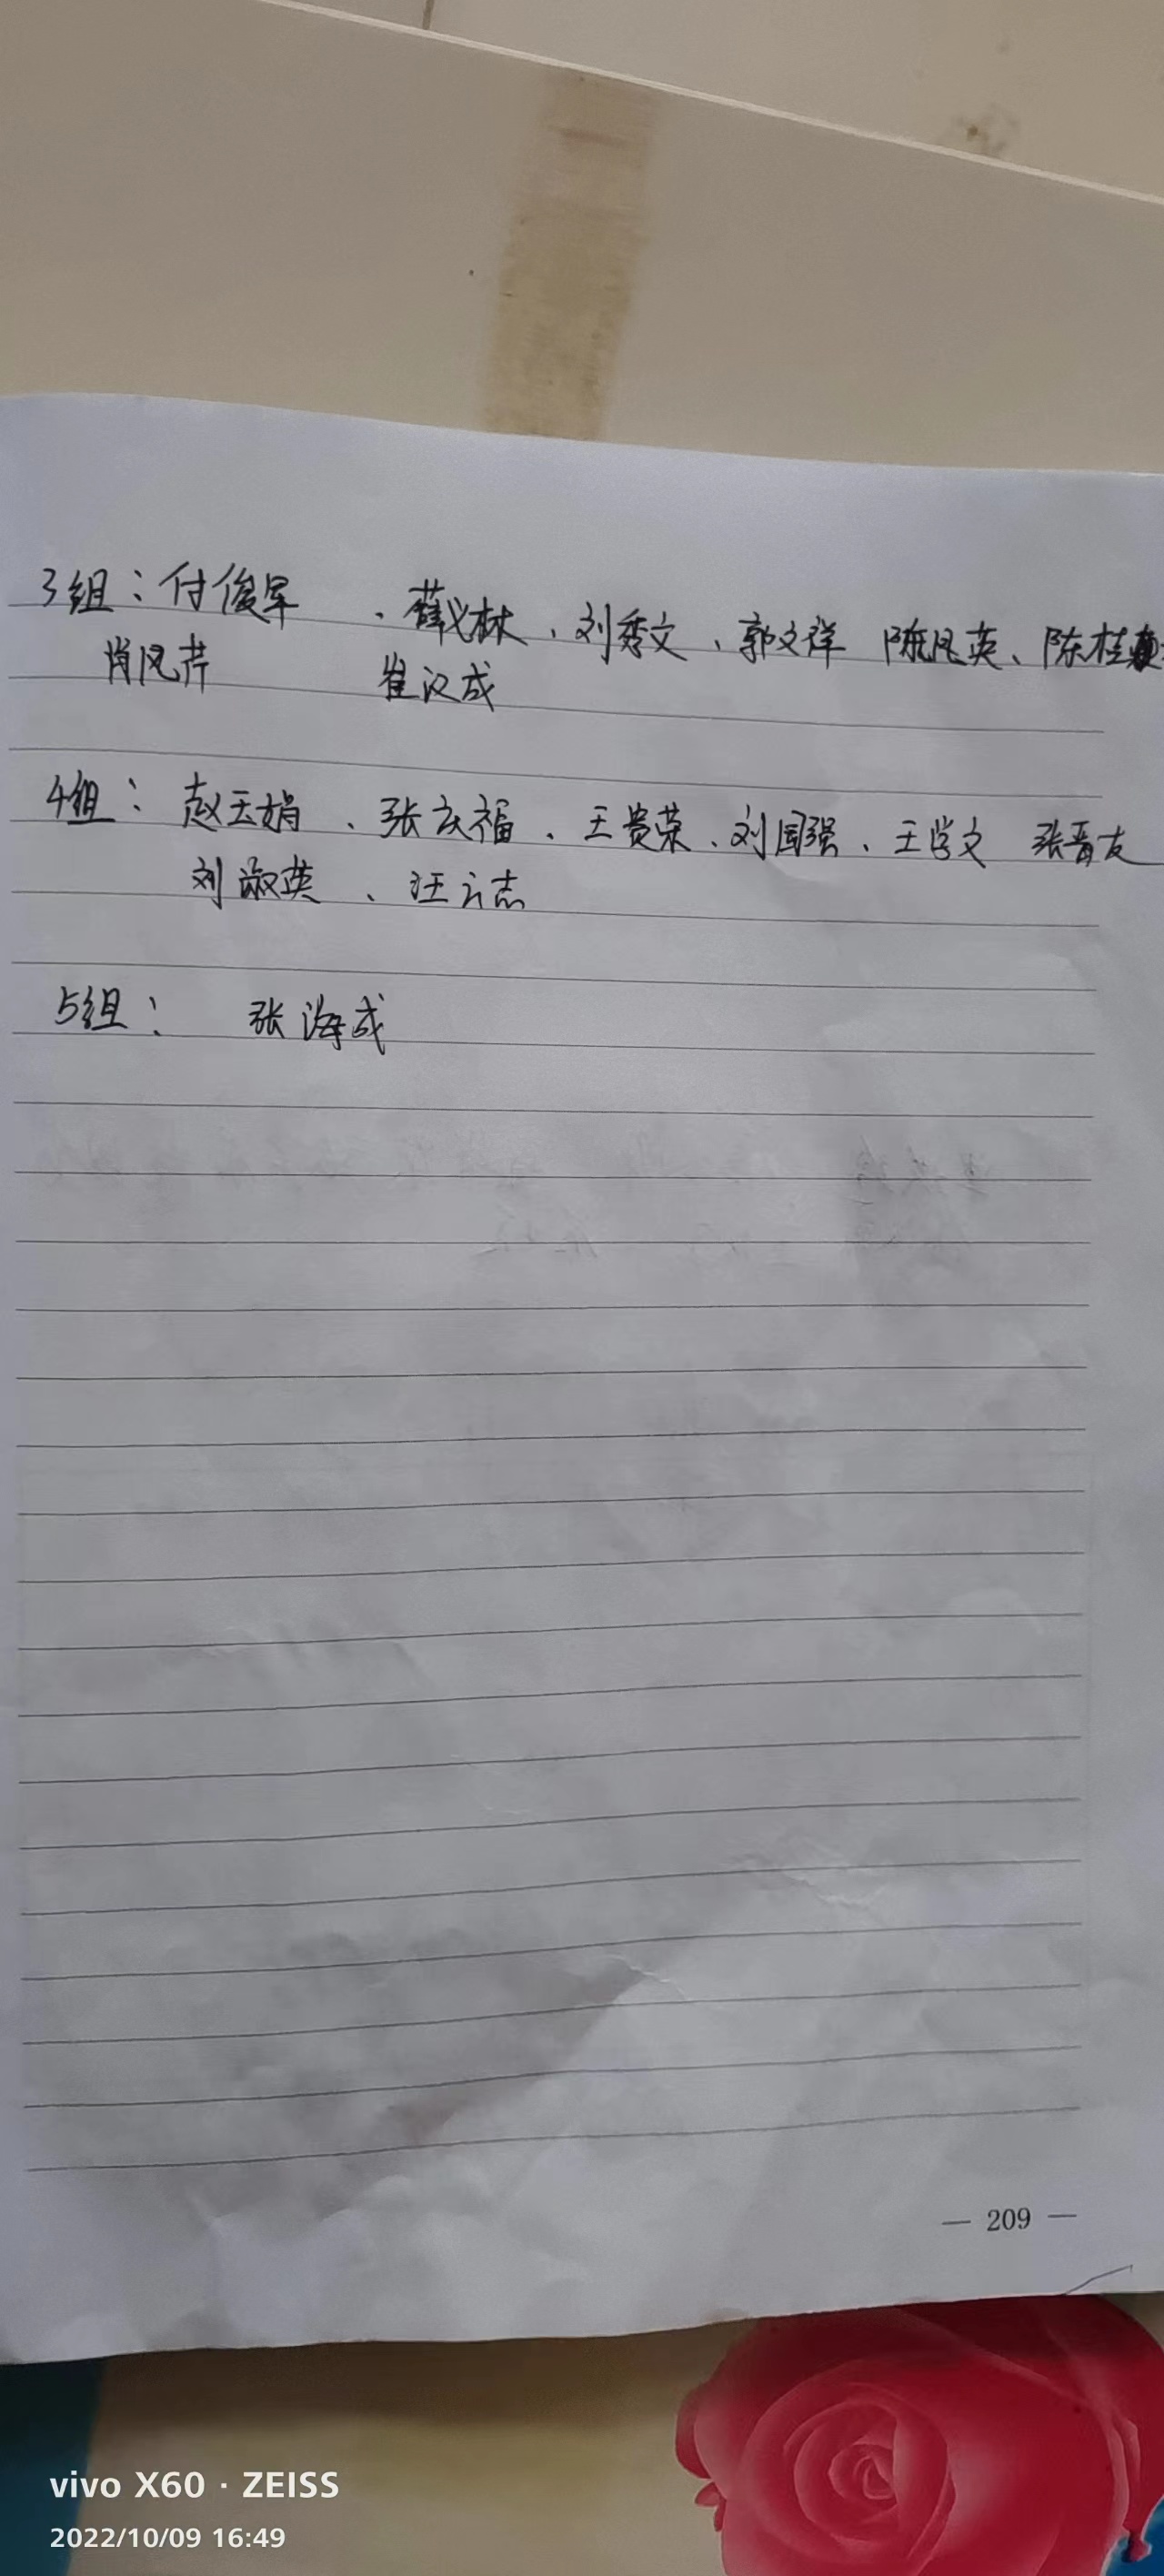 3组：付俊军 、薛义林、刘秀文、郭文祥 陈凤英、陈桂
肖凤芹 崔汉成
4组：赵玉娟、张庆福、王贵荣、刘国强、王学文 张晋友
刘淑英、汪云志
5组： 张海成
— 209 —
vivo X60 · ZEISS
2022/10/09 16:49